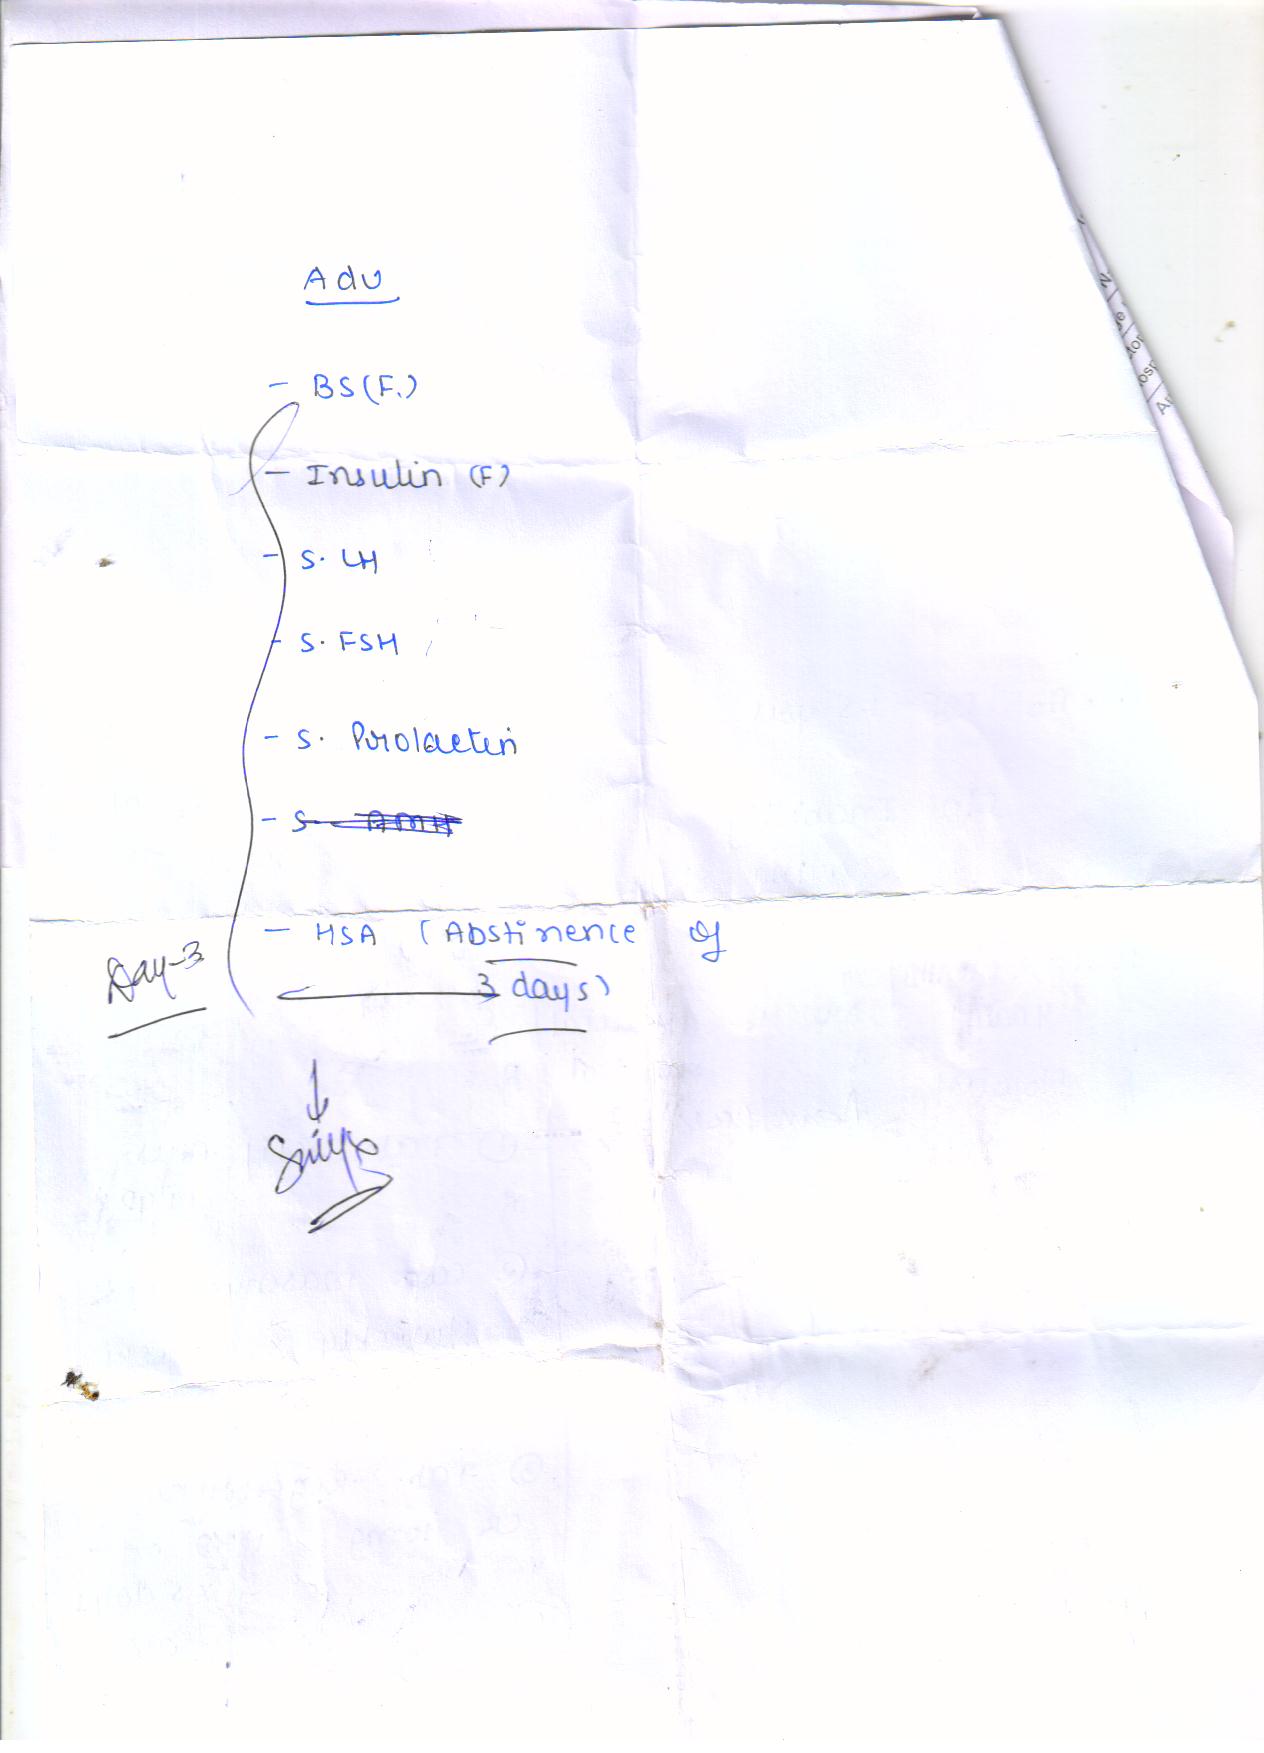 Adv
- BS (F.)
- Insulin (F)
- S. LH
- S. FSH
- S. Prolactin
- S. AMH
- HSA (Abstinence of
3 days)
Day-3